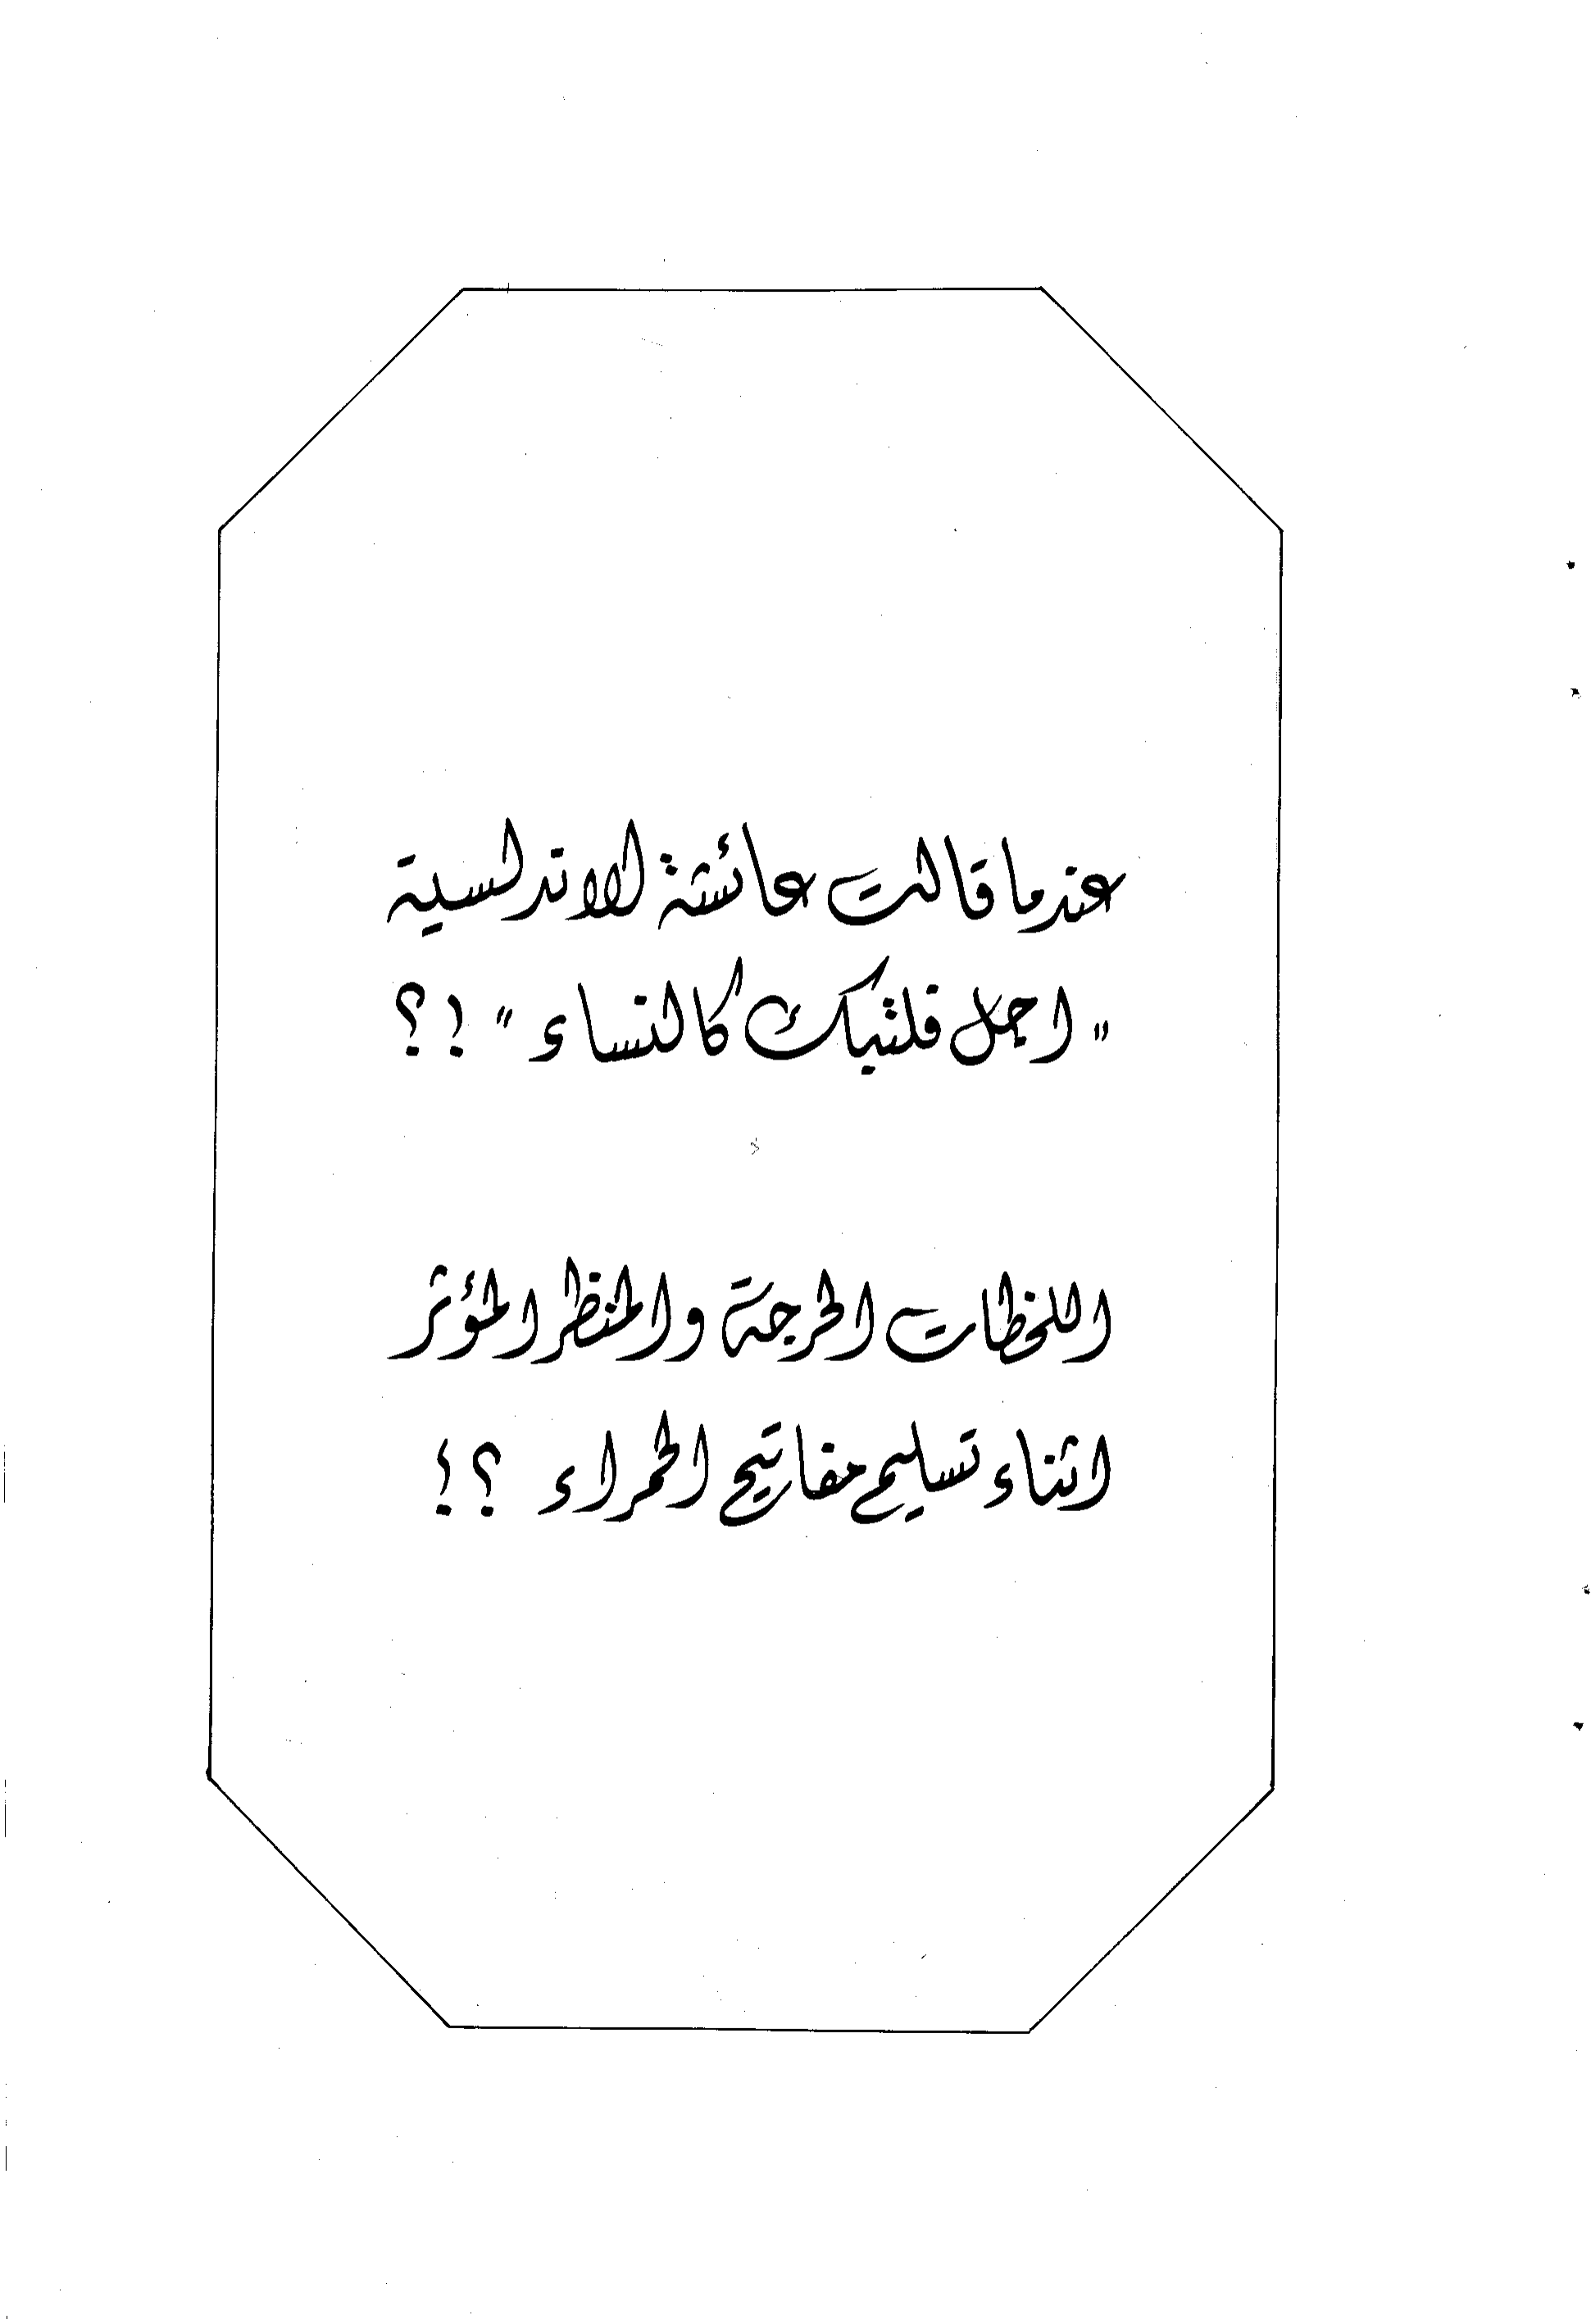 عندما قالت عائشة الاندلسية
"اجل فلتبك كالنساء" !؟
اللحظات الحرجة والمنظر المؤثر
اثناء تسليم مفاتيح الحمراء ؟!